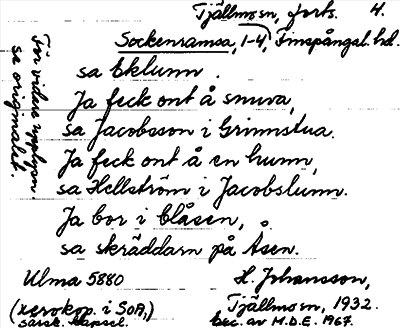 Tjällmo sn, forts. 4.
Sockenramsa, 1-4, Finspångal. hd.
sa Eklunn.
Ja feck ont å snuva,
sa Jacobsson i Grinnstua.
Ja feck ont å en hunn,
sa Hellström i Jacobslunn.
Ja bor i blåsen,
sa skräddarn på Åsen.
För vidare upplysn.
se originalet.
Ulma 5880
(xerokop. i SOA,)
särsk. kapsel.
H. Johansson,
Tjällmo sn, 1932.
Exc. av M.D.E. 1967.